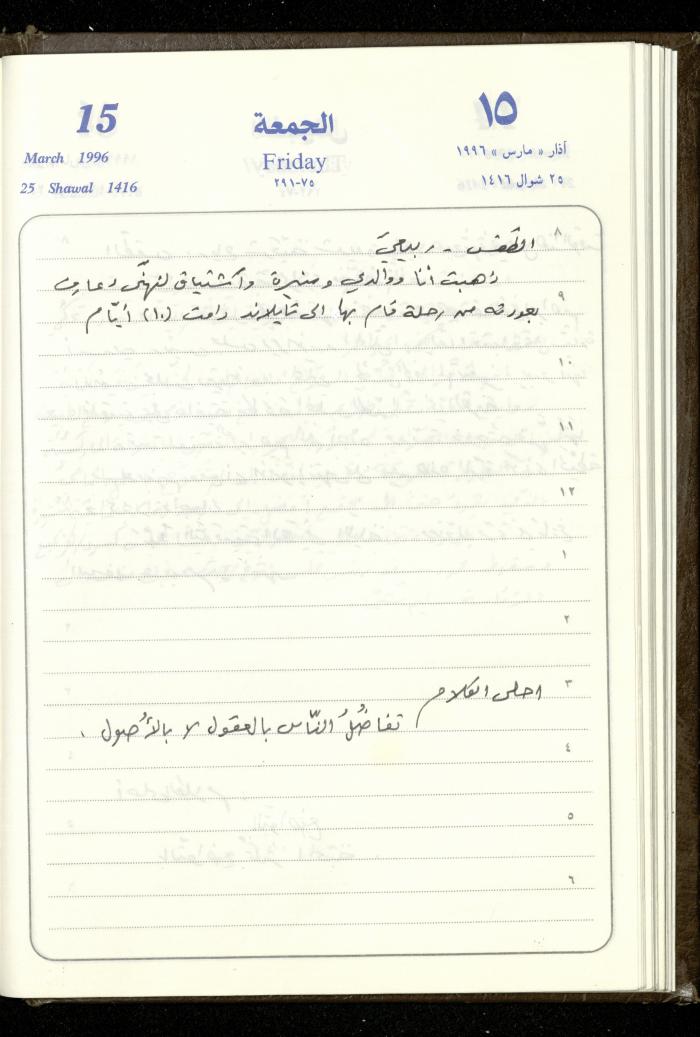 15
الجمعة
١٥
March 1996
Friday
آذار « مارس » ١٩٩٦
25 Shawal 1416
٧٥-٢٩١
٢٥ شوال ١٤١٦
٨
الطقس - ربيعيّ
ذهبت أنا ووالدي ومنيرة وأشتياق لنهنّى دعار
٩
بعودته من رحلة قام بها الى تايلاند دامت (١٠) أيّام
١٠
١١
١٢
١
٢
٣
احلى الكلام
تفاضُلُ النّاس بالعقول لا بالأُصول .
٤
٥
٦